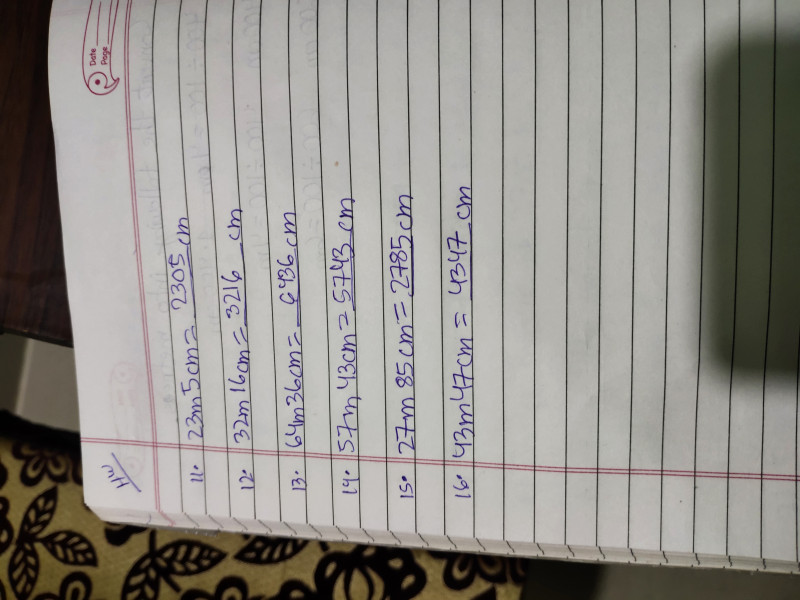 Date
Page
HW
11. 23m5cm = 2305 cm
12. 32m16cm = 3216 cm
13. 64m36cm = 6436 cm
14. 57m, 43cm = 5743 cm
15. 27m 85cm = 2785 cm
16. 43m47cm = 4347 cm